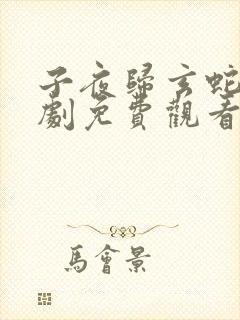 子夜歸玄蛇
劇免費觀看
馬會景